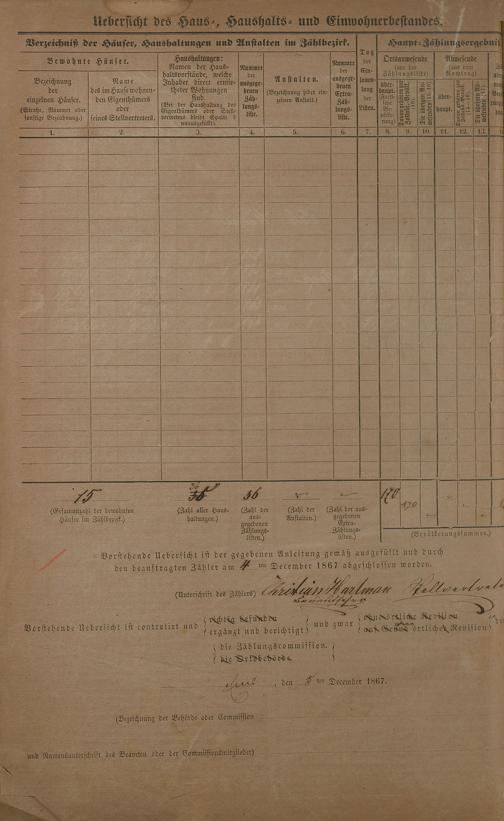 Uebersicht des Haus-, Haushalts- und Einwohnerbestandes.
Verzeichniß der Häuser, Haushaltungen und Anstalten im Zählbezirk.
Haupt-Zählungsergebniß
Bewohnte Häuser.
Bezeichnung
der
einzelnen Häuser.
(Straße, Nummer oder
sonstige Bezeichnung.)
Name
des im Hause wohnen-
den Eigenthümers
oder
seines Stellvertreters.
Haushaltungen:
Namen der Haus-
haltsvorstände, welche
Inhaber direct ermie-
theter Wohnungen
sind.
(Bei der Haushaltung des
Eigenthümers oder Stell-
vertreters bleibt Spalte 3
unausgefüllt.)
Nummer
der
ausgege-
benen
Zäh-
lungs-
liste.
Anstalten.
(Bezeichnung jeder ein-
zelnen Anstalt.)
Nummer
der
ausgege-
benen
Extra-
Zäh-
lungs-
liste.
Tag
der
Ein-
samm-
lung
der
Listen.
Ortsanwesende
(aus der
Zählungsliste)
über-
haupt.
Abwesende
(aus dem
Nachtrag)
über-
haupt.
1. 2. 3. 4. 5. 6. 7. 8. 9. 10. 11. 12. 13.
15
36
170
170
(Gesammtzahl der bewohnten
Häuser im Zählbezirk.)
(Zahl aller Haus-
haltungen.)
(Zahl der
aus-
gegebenen
Zählungs-
listen.)
(Zahl der
Anstalten.)
(Zahl der aus-
gegebenen
Extra-
Zählungs-
listen.)
(Bevölkerungssumme.)
Vorstehende Uebersicht ist der gegebenen Anleitung gemäß ausgefüllt und durch
den beauftragten Zähler am 4 ten December 1867 abgeschlossen worden.
(Unterschrift des Zählers) Christian Hartman
Vorstehende Uebersicht ist controlirt und richtig befunden
ergänzt und berichtigt
und zwar
örtlicher Revision
die Zählungscommission.
die Ortsbehörde.
, den 5 ten December 1867.
(Bezeichnung der Behörde oder Commission
und Namensunterschrift des Beamten oder der Commissionsmitglieder)